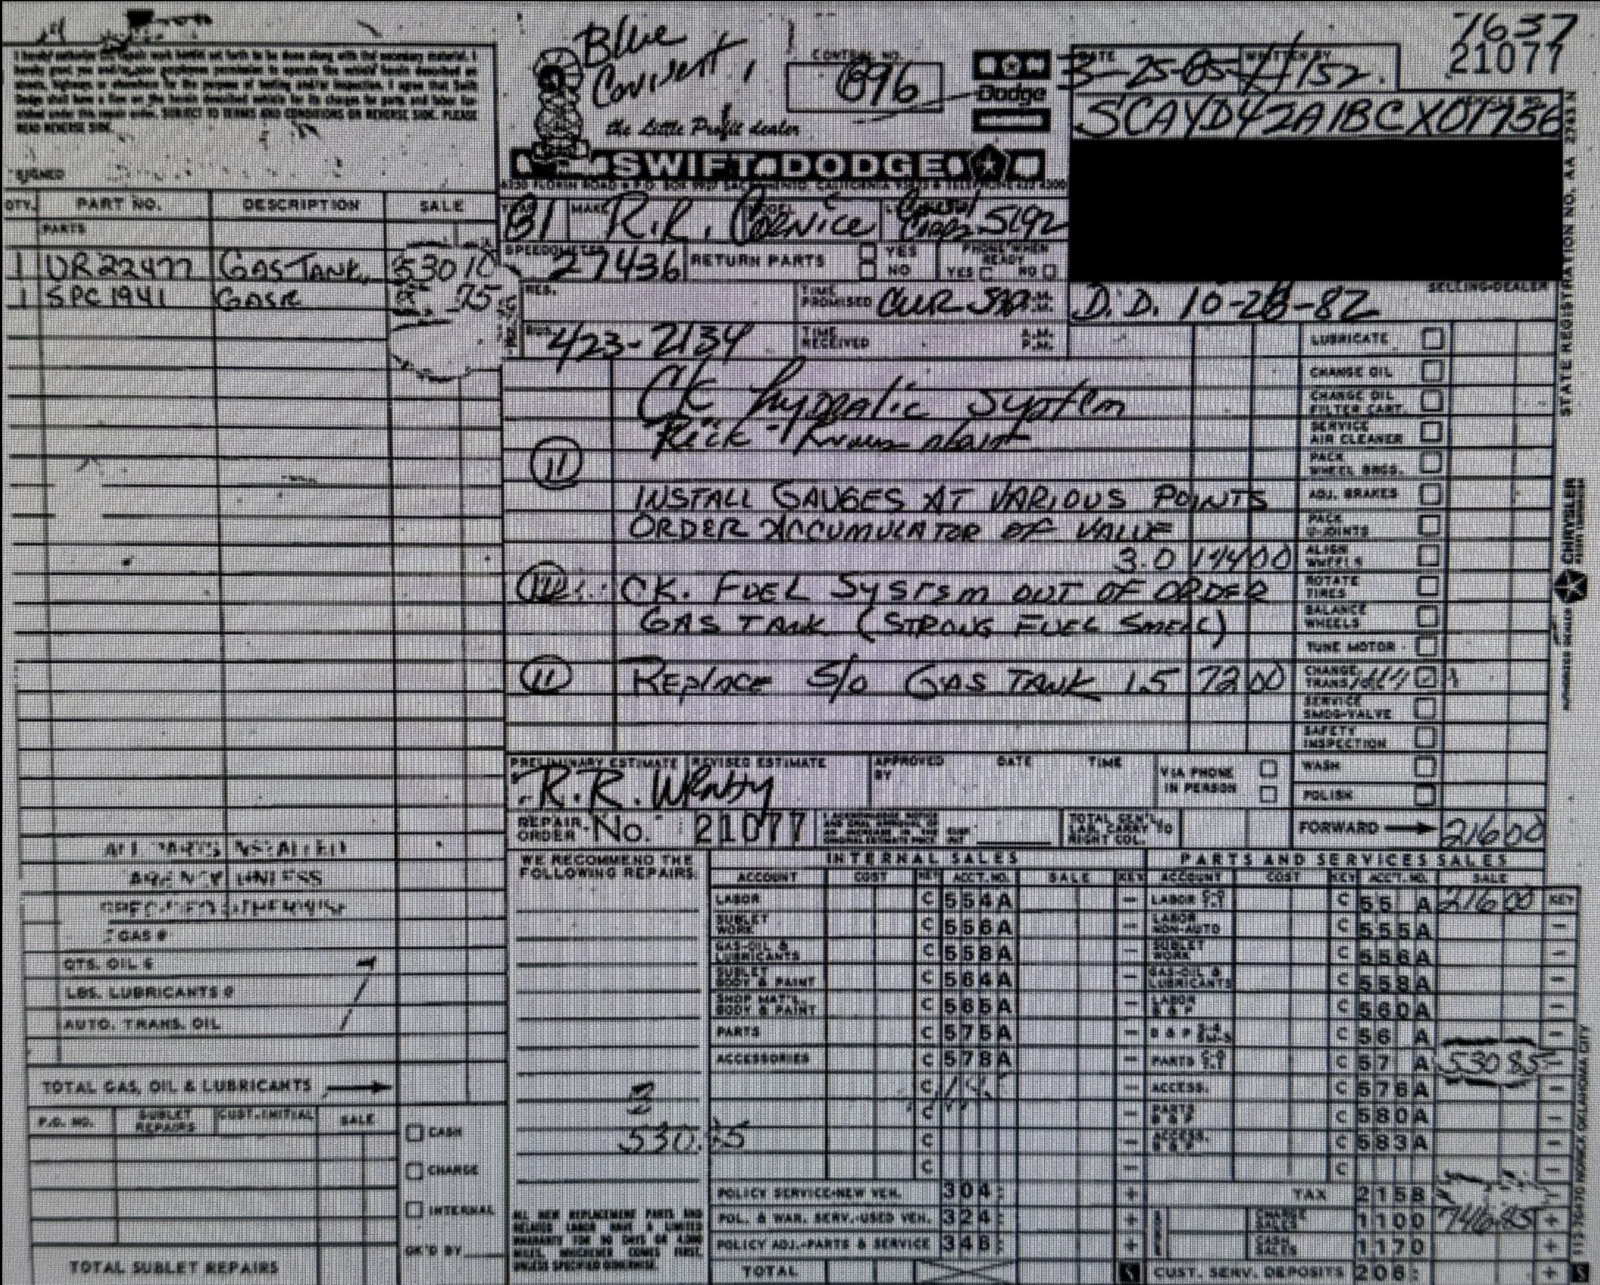 7637
21077
I hereby authorize the repair work hereto set forth to be done along with the necessary material. I
hereby grant you and/or your employees permission to operate the vehicle herein described on
streets, highways or elsewhere for the purpose of testing and/or inspection. I agree that Swift
READ REVERSE SIDE.
SIGNED
Blue
Convert,
the Little Profit dealer
CONTROL NO.
896
Dodge
DATE
WRITTEN BY
3-25-85
SCAYD42A1BCX01936
SWIFT DODGE
D.D. 10-28-82
SELLING-DEALER
STATE REGISTRATION NO. AA 27413 N
QTY. PART NO. DESCRIPTION SALE
PARTS
1 UR22477 GAS TANK, 530 10
1 SPC1941 75
81 MAKE R.R. Cornice
SPEEDOMETER 27436
RETURN PARTS YES NO
PHONE WHEN READY YES NO
RES.
TIME PROMISED
BUS. 423-2134
TIME RECEIVED A.M. P.M.
CK hydralic System
11
INSTALL GAUGES AT VARIOUS POINTS
ORDER ACCUMULATOR OF VALUE
3.0 144 00
CK. FUEL SYSTEM OUT OF ORDER
GAS TANK (STRONG FUEL SMELL)
11 REPLACE S/O GAS TANK 1.5 72 00
LUBRICATE
CHANGE OIL
CHANGE OIL FILTER CART.
SERVICE AIR CLEANER
PACK WHEEL BRGS.
ADJ. BRAKES
PACK U-JOINTS
ALIGN WHEELS
ROTATE TIRES
BALANCE WHEELS
TUNE MOTOR
CHANGE TRANS
SERVICE SMOG-VALVE
SAFETY INSPECTION
WASH
POLISH
AUTHORIZED DEALER CHRYSLER
PRELIMINARY ESTIMATE REVISED ESTIMATE APPROVED BY DATE TIME VIA PHONE IN PERSON
REPAIR ORDER No. 21077
FORWARD 216 00
ALL PARTS INSTALLED
ARE NEW UNLESS
SPECIFIED OTHERWISE
GAS @
QTS. OIL @
LBS. LUBRICANTS @
AUTO. TRANS. OIL
TOTAL GAS, OIL & LUBRICANTS
P.O. NO. SUBLET REPAIRS CUST. INITIAL SALE
TOTAL SUBLET REPAIRS
CASH
CHARGE
INTERNAL
OK'D BY
WE RECOMMEND THE
FOLLOWING REPAIRS.
530.85
ALL NEW REPLACEMENT PARTS AND
RELATED LABOR HAVE A LIMITED
WARRANTY FOR 90 DAYS OR 4,000
MILES, WHICHEVER COMES FIRST,
UNLESS SPECIFIED OTHERWISE.
INTERNAL SALES
ACCOUNT COST KEY ACCT. NO. SALE KEY
LABOR C 554A
SUBLET WORK C 556A
GAS-OIL & LUBRICANTS C 558A
SUBLET BODY & PAINT C 564A
SHOP MAT'L BODY & PAINT C 565A
PARTS C 575A
ACCESSORIES C 578A
C
C
C
C
POLICY SERVICE-NEW VEH. 304
POL. & WAR. SERV.-USED VEH. 324
POLICY ADJ.-PARTS & SERVICE 348
TOTAL
PARTS AND SERVICES SALES
ACCOUNT COST KEY ACCT. NO. SALE KEY
LABOR C 55 A 216 00
LABOR NON-AUTO C 555A
SUBLET WORK C 556A
GAS-OIL & LUBRICANTS C 558A
LABOR B & P C 560A
B & P C 56 A
PARTS C 57 A 530 85
ACCESS. C 576A
PARTS B & P C 580A
ACCESS. C 583A
C
TAX 2158
CHARGE SALES 1100 746.85
CASH SALES 1170
CUST. SERV. DEPOSITS 206